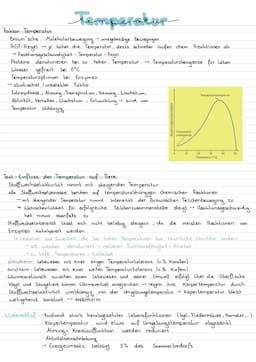 Temperatur
Faktor: Temperatur
Braun'sche Molekularbewegung → unregelmäßige Bewegungen
RGT-Regel → je höher die Temperatur, desto schneller laufen chem. Reaktionen ab
→ Reaktionsgeschwindigkeit-Temperatur-Regel
Proteine denaturieren bei zu hoher Temperatur → Temperaturobergrenze für Leben
Wasser gefriert bei 0°C
Temperaturoptimum bei Enzymen
→ abiotischer Faktor
Fotosynthese, Atmung, Transpiration, Keimung, Wachstum,
Aktivität, Verhalten, Wachstum, Entwicklung → sind von
Temperatur abhängig
Text: Einfluss der Temperatur auf Tiere
Stoffwechselaktivität nimmt mit steigender Temperatur
alle Stoffwechselprozesse beruhen auf temperaturabhängigen chemischen Reaktionen
→ mit steigender Temperatur nimmt Intensität der Braunschen Teilchenbewegung zu
→ Wahrscheinlichkeit für erfolgreiche Teilchenzusammenstöße steigt → Reaktionsgeschwindig-
keit nimmt ebenfalls zu
Stoffwechselintensität lässt sich nicht beliebig steigern, da die meisten Reaktionen von
Enzymen katalysiert werden
→ bestehen aus Eiweißen die bei hohen Temperaturen ihre räumliche Struktur ändern
→ sie werden denaturiert & verlieren Funktionsfähigkeit → Hitzetod
→ tiefe Temperaturen → Kältetod
stenotherm: Lebewesen mit einer engen Temperaturtoleranz
eurytherm: Lebewesen mit einer weiten Temperaturtoleranz
Wärmeaustausch zwischen einem Lebewesen und seiner Umwelt erfolgt über die Oberfläche
Vögel und Säugetiere können Wärmeverlust ausgleichen → regeln ihre Körpertemperatur durch
Stoffwechselaktivität unabhängig von der Umgebungstemperatur → Körpertemperatur bleibt
weitgehend konstant → endotherm
Winterschlaf - Zustand stark herabgesetzter Lebensfunktionen (Igel, Fledermäuse, Hamster...)
Körpertemperatur wird etwas auf Umgebungstemperatur abgesenkt
Atmung, Kreislauffunktion werden reduziert
Aktivitätseinstellung
→ Energieumsatz beträgt